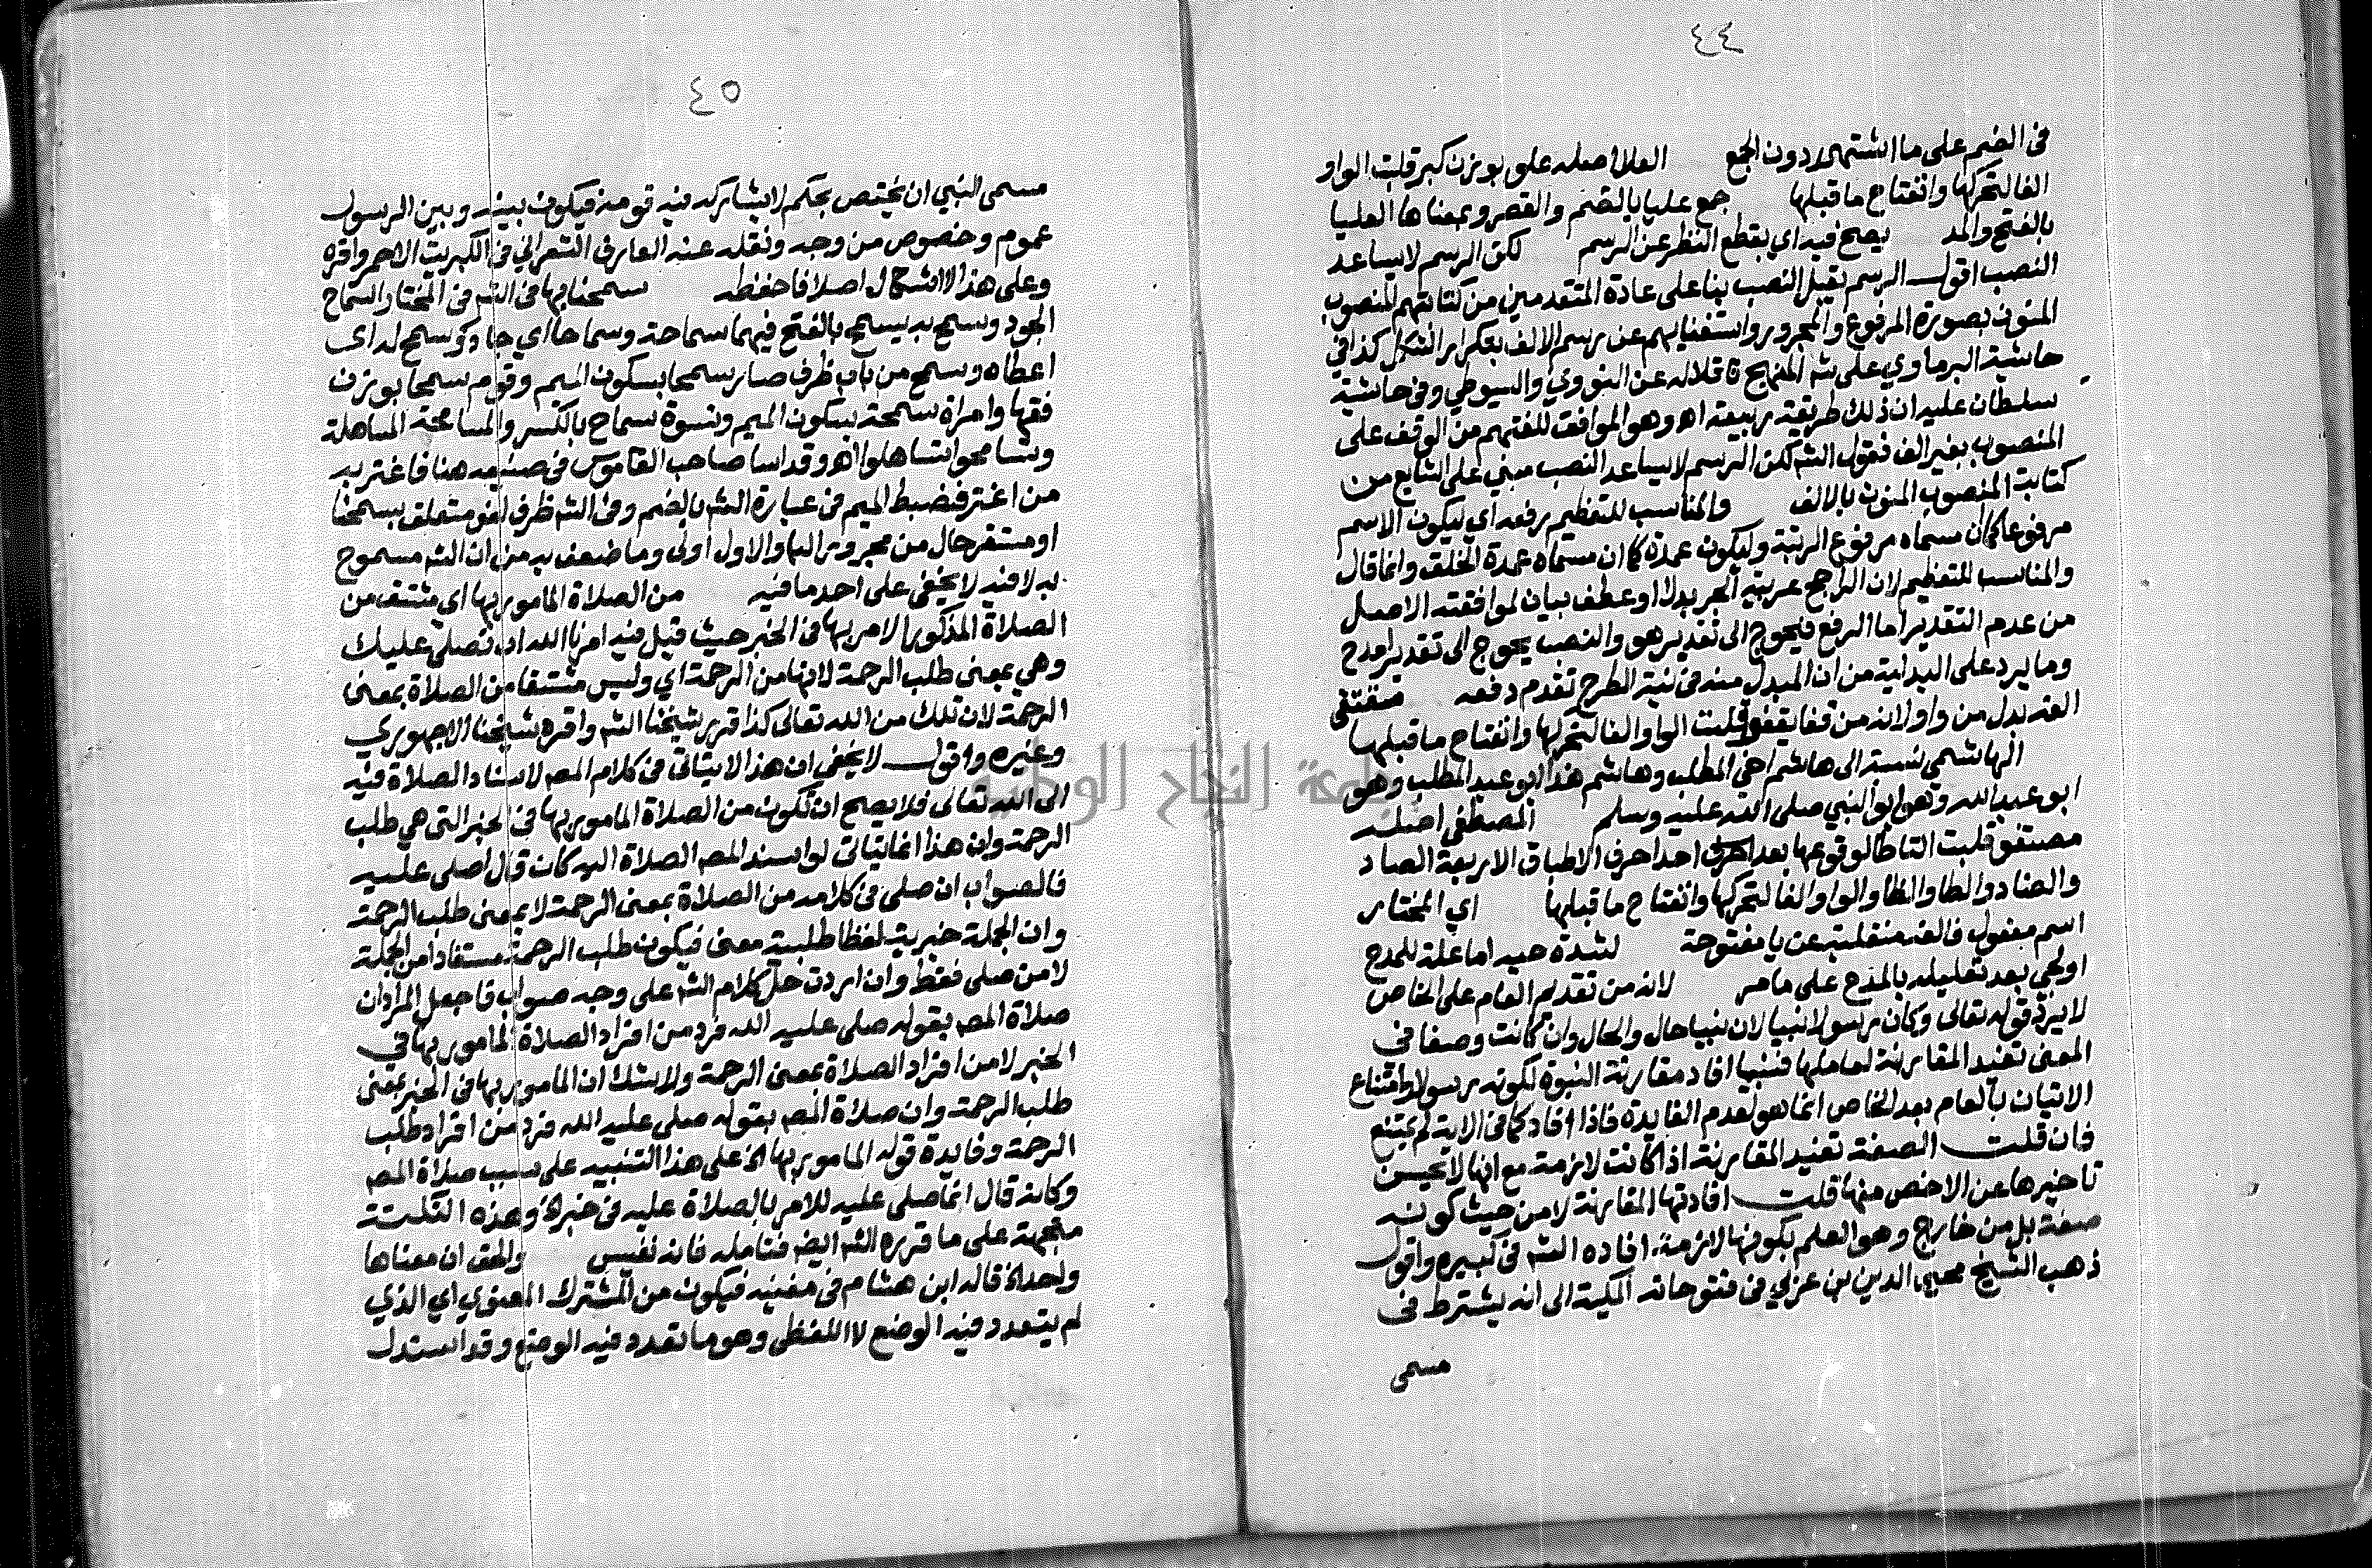 ٤٤
في الضم على ما اشتهر دون الجمع العلا اصله علو بوزن كبر قلبت الواو
الفا لتحركها وانفتاح ما قبلها جمع عليا بالضم والقصر وبمعناها العليا
بالفتح والمد يصح فيه اي بقطع النظر عن الرسم لكن الرسم لا يساعد
النصب اقول الرسم يقبل النصب بنا على عادة المتقدمين من كتابتهم المنصوب
المنون بصورة المرفوع والمجرور واستغنايهم عن رسم الالف بتكرار الشكل كذا في
حاشية البرماوي على شم المنهج ناقلا له عن النووي والسيوطي وفي حاشية
سلطان عليه ان ذلك طريقة ربيعة اه وهو الموافق للغتهم من الوقف على
المنصوب بغير الف فقول الشم لكن الرسم لا يساعد النصب مبني على الشايع من
كتابة المنصوب المنون بالالف والمناسب للتعظيم رفعه اي ليكون الاسم
مرفوعا كما ان مسماه مرفوع الرتبة وليكون عمدة كما ان مسماه عمدة الخلق وانما قال
والمناسب للتعظيم لان الراجح عربية الجر بدلا او عطف بيان لموافقته الاصل
من عدم التقدير اما الرفع فيحوج الى تقدير هو والنصب يحوج الى تقدير امدح
وما يرد على البدلية من ان المبدل منه في نية الطرح تقدم دفعه مقتفى
الفه بدل من واو لانه من قفا يقفو قلبت الواو الفا لتحركها وانفتاح ما قبلها
الهاشمي نسبة الى هاشم اخي المطلب وهاشم هذا ابو عبد المطلب وهو
ابو عبد الله وهو ابو النبي صلى الله عليه وسلم المصطفى اصله
مصتفو قلبت التا طا لوقوعها بعد احرف احد احرف الاطباق الاربعة الصاد
والضاد والطا والظا والواو الفا لتحركها وانفتاح ما قبلها اي المختار
اسم مفعول فالفه منقلبة عن يا مفتوحة لشدة حبه اما علة للمدح
او لحي بعد تعليله بالمدح على ما مر لانه من تقديم العام على الخاص
لا يرد قوله تعالى وكان رسولا نبيا لان نبيا حال والحال وان كانت وصفا في
المعنى تفيد المقارنة لعاملها فنبيا افاد مقارنة النبوة لكونه رسولا وامتناع
الاتيان بالعام بعد الخاص انما هو لعدم الفايدة فاذا افاد كما في الاية لم يمتنع
فان قلت الصفة تفيد المقارنة اذا كانت لازمة مع انها لا يحسن
تاخيرها عن الاخص منها قلت افادتها المقارنة لا من حيث كونه
صفة بل من خارج وهو العلم بكونها لازمة افاده الشم في كبيره واقول
ذهب الشيخ محيي الدين بن عربي في فتوحاته المكية الى انه يشترط في
مسمى
٤٥
مسمى النبي ان يختص بحكم لا يشاركه فيه قومه فيكون بينه وبين الرسول
عموم وخصوص من وجه ونقله عنه العارف الشعراني في الكبريت الاحمر واقره
وعلى هذا لا اشكال اصلا فاحفظه سمحنا بها في الشم في المختار السماح
الجود وسمح به يسمح بالفتح فيهما سماحة وسماحا اي جاد وسمح له اي
اعطاه وسمح من باب ظرف صار سمحا بسكون الميم وقوم سمحا بوزن
فقها وامراة سمحة بسكون الميم ونسوة سماح بالكسر والمسامحة المساهلة
وتسامحوا تساهلوا اه وقد اسا صاحب القاموس في صنيعه هنا فاغتر به
من اغتر فضبط الميم في عبارة الشم بالضم وفي الشم ظرف لغو متعلق بسمحنا
او مستقر حال من مجرور البا والاول اولى وما ضعف به من ان الشم مسموح
به لا فيه لا يخفى على احد ما فيه من الصلاة المامور بها اي مشتق من
الصلاة المذكور الامر بها في الخبر حيث قيل فيه امرنا الله ان نصلي عليك
وهي بمعنى طلب الرحمة لانها من الرحمة اي وليس مشتقا من الصلاة بمعنى
الرحمة لان تلك من الله تعالى كذا قرر شيخنا الشم واقره شيخنا الاجهوري
وغيره واقول لا يخفى ان هذا لا يتاتى في كلام المص لاسناد الصلاة فيه
الى الله تعالى فلا يصح ان تكون من الصلاة المامور بها في الخبر التي هي طلب
الرحمة وان هذا انما يتاتى لو اسند المص الصلاة اليه كان قال اصلي عليه
فالصواب ان صلى في كلامه من الصلاة بمعنى الرحمة لا بمعنى طلب الرحمة
وان الجملة خبرية لفظا طلبية معنى فيكون طلب الرحمة مستفادا من الجملة
لا من صلى فقط وان اردت حل كلام الشم على وجه صواب فاجعل المراد ان
صلاة المص بقوله صلى عليه الله فرد من افراد الصلاة المامور بها في
الخبر لا من افراد الصلاة بمعنى الرحمة ولا شك ان المامور بها في الخبر بمعنى
طلب الرحمة وان صلاة المص بقوله صلى عليه الله فرد من افراد طلب
الرحمة وفايدة قوله المامور بها الخ على هذا التنبيه على سبب صلاة المص
وكانه قال انما صلى عليه للامر بالصلاة عليه في خبر الخ وهذه النكتة
متجهة على ما قرره الشم ايضم فتامله فانه نفيس والحق ان معناها
واحد الخ قاله ابن هشام في مغنيه فيكون من المشترك المعنوي اي الذي
لم يتعدد فيه الوضع لا اللفظي وهو ما تعدد فيه الوضع وقد استدل
جامعة النجاح الوطنية